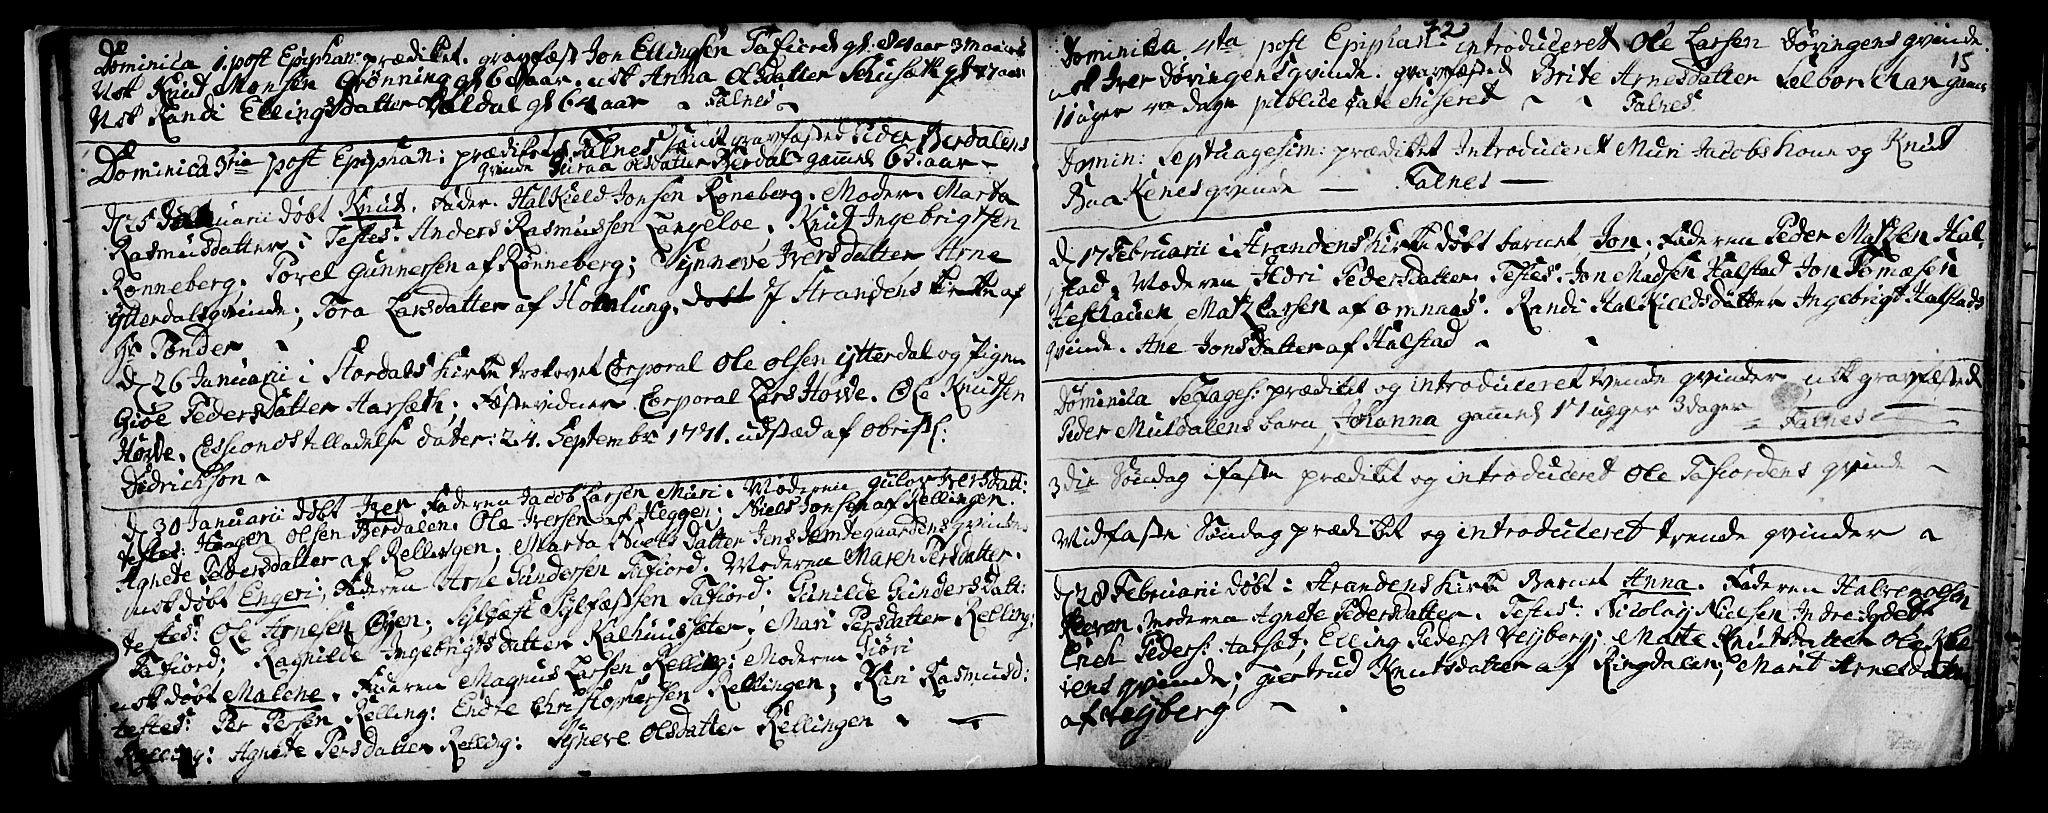 Dominica 1. post Epiphan: prædiket. gravfæst Jon Ellingsen Tafiord gl: 84 aar 3 maan
Nok Knud Monsen Grønning gl 60 aar. nok Anna Olsdatter gl 47 aar
Nok Randi Ellingsdatter Valdal gl 64 aar Falnes
Dominica 3tia post Epiphan: prædiket Falnes samt gravfæsted Peder Berdalens
qvinde Olsdatter Berdal gammel 63 aar
d. Januarii døbt Knud. Fader. Halkield Jonsen Røneberg. Moder. Marta
Rasmusdatter; Testes: Anders Rasmussen Langeloe. Knud Ingebrigtsen
Rønneberg. Torel Gunnersen af Rønneberg; Synneve Iversdatter Arne
ytterdals qvinde; Tora Larsdatter af Homlung. døbt I Strandens Kirke af
Hr Tønder
d 26 Januarii i Stordals Kirke trolovet Corporal Ole Olsen ytterdal og Pigen
Giøe Pedersdatter Aarseth; Fæstevidner Corporal Lars Hovde. Ole Knudsen
Hovde. Cessions tilladelse dater: 24. Septembr 1771. udstæd af Obristl:
Didrickson
d 30 Januarii døbt Iver Faderen Jacob Larsen Muri. Moderen Gulov Iversdatt:
testes: Haagen Olsen Berdalen. Ole Iversen af Heggen; Niels Jonsen af Rellingen
Agnete Pedersdatter af Rellingen. Marta Nielsdatter Jens qvinde
nok døbt Engeri, Faderen Arne Gundersen Tafiord. Moderen Maren Persdatter.
testes: Ole Arnesen Øyen; Sylfæst Sylfæstsen Tafiord: Gunilde Gundersdatt:
Tafiord; Ragnilde Ingebrigtsdatter Kalhuussæter. Mari Persdatter Relling;
nok døbt Malene. Faderen Magnus Larsen Relling; Moderen Siøri
testes: Per Persen Relling: Endre Christophersen Rellingen; Kari Rasmusd:
Relling; Agnete Persdatter Relling: Syneve Olsdatter Rellingen
72
15
Dominica 4ta post Epiphan: introduceret Ole Larsen Døvingens qvinde.
nok Iver Døvingens qvinde. gravfæsted Brite Arnesdatter gamel
11 uger dage publice catechiseret Falnes
Domin: Septuagesim: prædiket Introduceret Muri Jacobs kone og Knud
Baakenes qvinde Falnes
d 17 Februarii i Strandens Kirke døbt barnet Jon. Faderen Peder Matsen Hal
stad, Moderen Pedersdatter. Testes: Jon Madsen Halstad Jon Tomæsen
Hesthauen Mats Larsen af Omnaas. Randi Halkieldsdatter Ingebrigt Halstads
qvinde. Ane Jonsdatter af Halstad
Dominica Sexages: prædiket og introduceret tvende qvinder nok gravfæsted
Peder Muldalens barn Johanna gammel 17 ugger 3 dager Falnes
3die Søndag i faste prædiket og introduceret Ole Tafiordens qvinde
Midfaste Søndag prædiket og introduceret trende qvinder
d 28 Februarii døbt i Strandens Kirke Barnet Anna. Faderen Halvor Olsen
Moderen Agnete Pedersdatter. Testes: Nicolay Nielsen Indre
Erich Peders: Aarsæt; Elling Peders: Veyberg; Marte Knutsdatter Ole
qvinde; giertrud Knutsdatter af Ringdalen; Marit Arnesdatter
af Veyberg